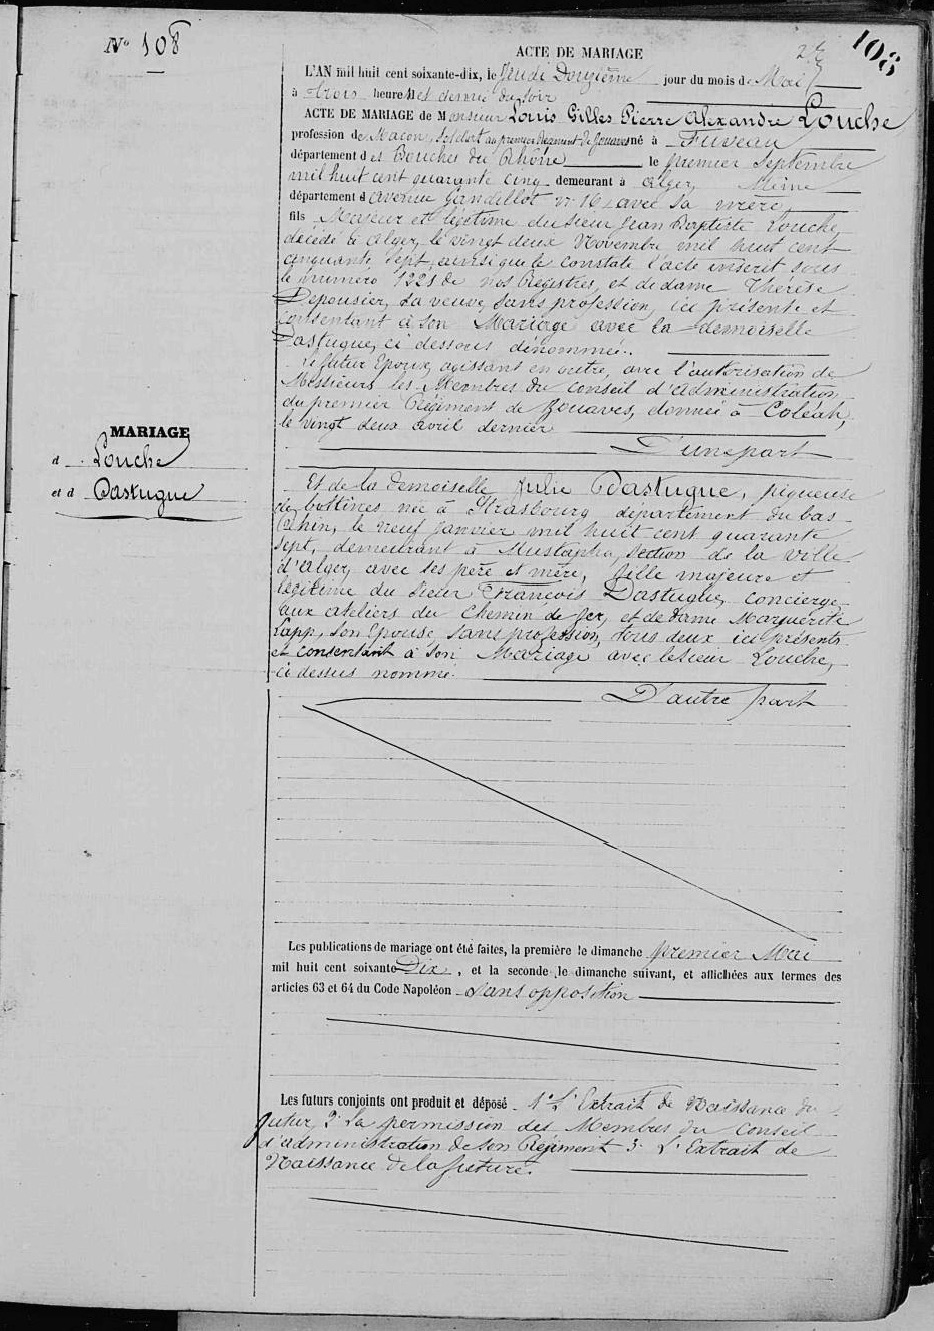 N° 108
108
ACTE DE MARIAGE
L'AN mil huit cent soixante-dix, le Jeudi Douzième jour du mois de Mai
à trois heures et demie du soir
ACTE DE MARIAGE de Monsieur Louis Gilles Pierre Alexandre Louche
profession de Maçon, Soldat au premier Régiment de Zouaves né à Fuveau
département des Bouches du Rhône le premier Septembre
mil huit cent quarante cinq demeurant à Alger, Même
département d avenue Gandillot n° 16, avec sa mère,
fils Majeur et légitime du sieur Jean Baptiste Louche,
décédé à Alger, le vingt deux Novembre mil huit cent
cinquante sept, ainsi que le constate l'acte inscrit sous
le numéro 1221 de nos Registres, et de dame Thérèse
Depousier, sa veuve, sans profession, ici présente et
consentant à son Mariage avec la demoiselle
Dastugue, ci dessous dénommée.
Le futur Epoux, agissant en outre, avec l'autorisation de
Messieurs les Membres du Conseil d'administration
du premier Régiment de Zouaves, donnée à Coléah,
le vingt deux avril dernier
D'une part
MARIAGE
d Louche
et d Dastugue
Et de la demoiselle Julie Dastugue, piqueuse
de bottines née à Strasbourg département du bas
Rhin, le neuf janvier mil huit cent quarante
sept, demeurant à Mustapha, section de la ville
d'Alger, avec ses père et mère, fille majeure et
légitime du sieur François Dastugue, concierge
aux ateliers du Chemin de fer, et de dame Marguerite
Lapp, son Epouse sans profession, tous deux ici présents
et consentant à son Mariage avec le sieur Louche,
ci dessus nommé.
D'autre part
Les publications de mariage ont été faites, la première le dimanche premier Mai
mil huit cent soixante Dix, et la seconde le dimanche suivant, et affichées aux termes des
articles 63 et 64 du Code Napoléon Sans opposition
Les futurs conjoints ont produit et déposé 1° L'Extrait de Naissance du
futur, 2° La permission des Membres du Conseil
d'administration de son Régiment 3° L'Extrait de
Naissance de la future.